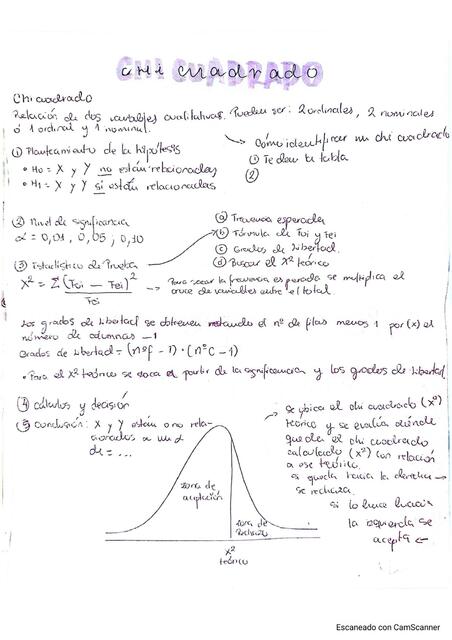 CHI CUADRADO
Chi cuadrado
Relación de dos variables cualitativas. Pueden ser: 2 ordinales, 2 nominales
ó 1 ordinal y 1 nominal.
→ Cómo identificar un chi cuadrado
① Te dan la tabla
②
① Planteamiento de la hipótesis
• H0 = X y Y no están relacionadas
• H1 = X y Y si están relacionadas
② Nivel de significancia
α = 0,01, 0,05, 0,10
③ Estadístico de Prueba
X² = Σ (Foi − Fei)²
Fei
ⓐ Frecuencia esperada
ⓑ Fórmula de Foi y Fei
ⓒ Grados de Libertad.
ⓓ Buscar el X² teórico
→ Para sacar la frecuencia esperada se multiplica el
cruce de variables entre el total.
Los grados de Libertad se obtienen restando el nº de filas menos 1 por (x) el
número de columnas −1
Grados de Libertad = (nºf − 1) · (nºC − 1)
• Para el X² teórico se saca a partir de la significancia y los grados de libertad.
④ Cálculos y decisión
⑤ Conclusión: X y Y están o no rela-
cionados a un α
de = ...
→ se ubica el chi cuadrado (X²)
teórico y se evalúa dónde
queda el chi cuadrado
calculado (X²) con relación
a ese teórico.
si queda hacia la derecha →
se rechaza.
si lo hace hacia
la izquierda se
acepta ←
zona de
aceptación
zona de
rechazo
X²
teórico
Escaneado con CamScanner